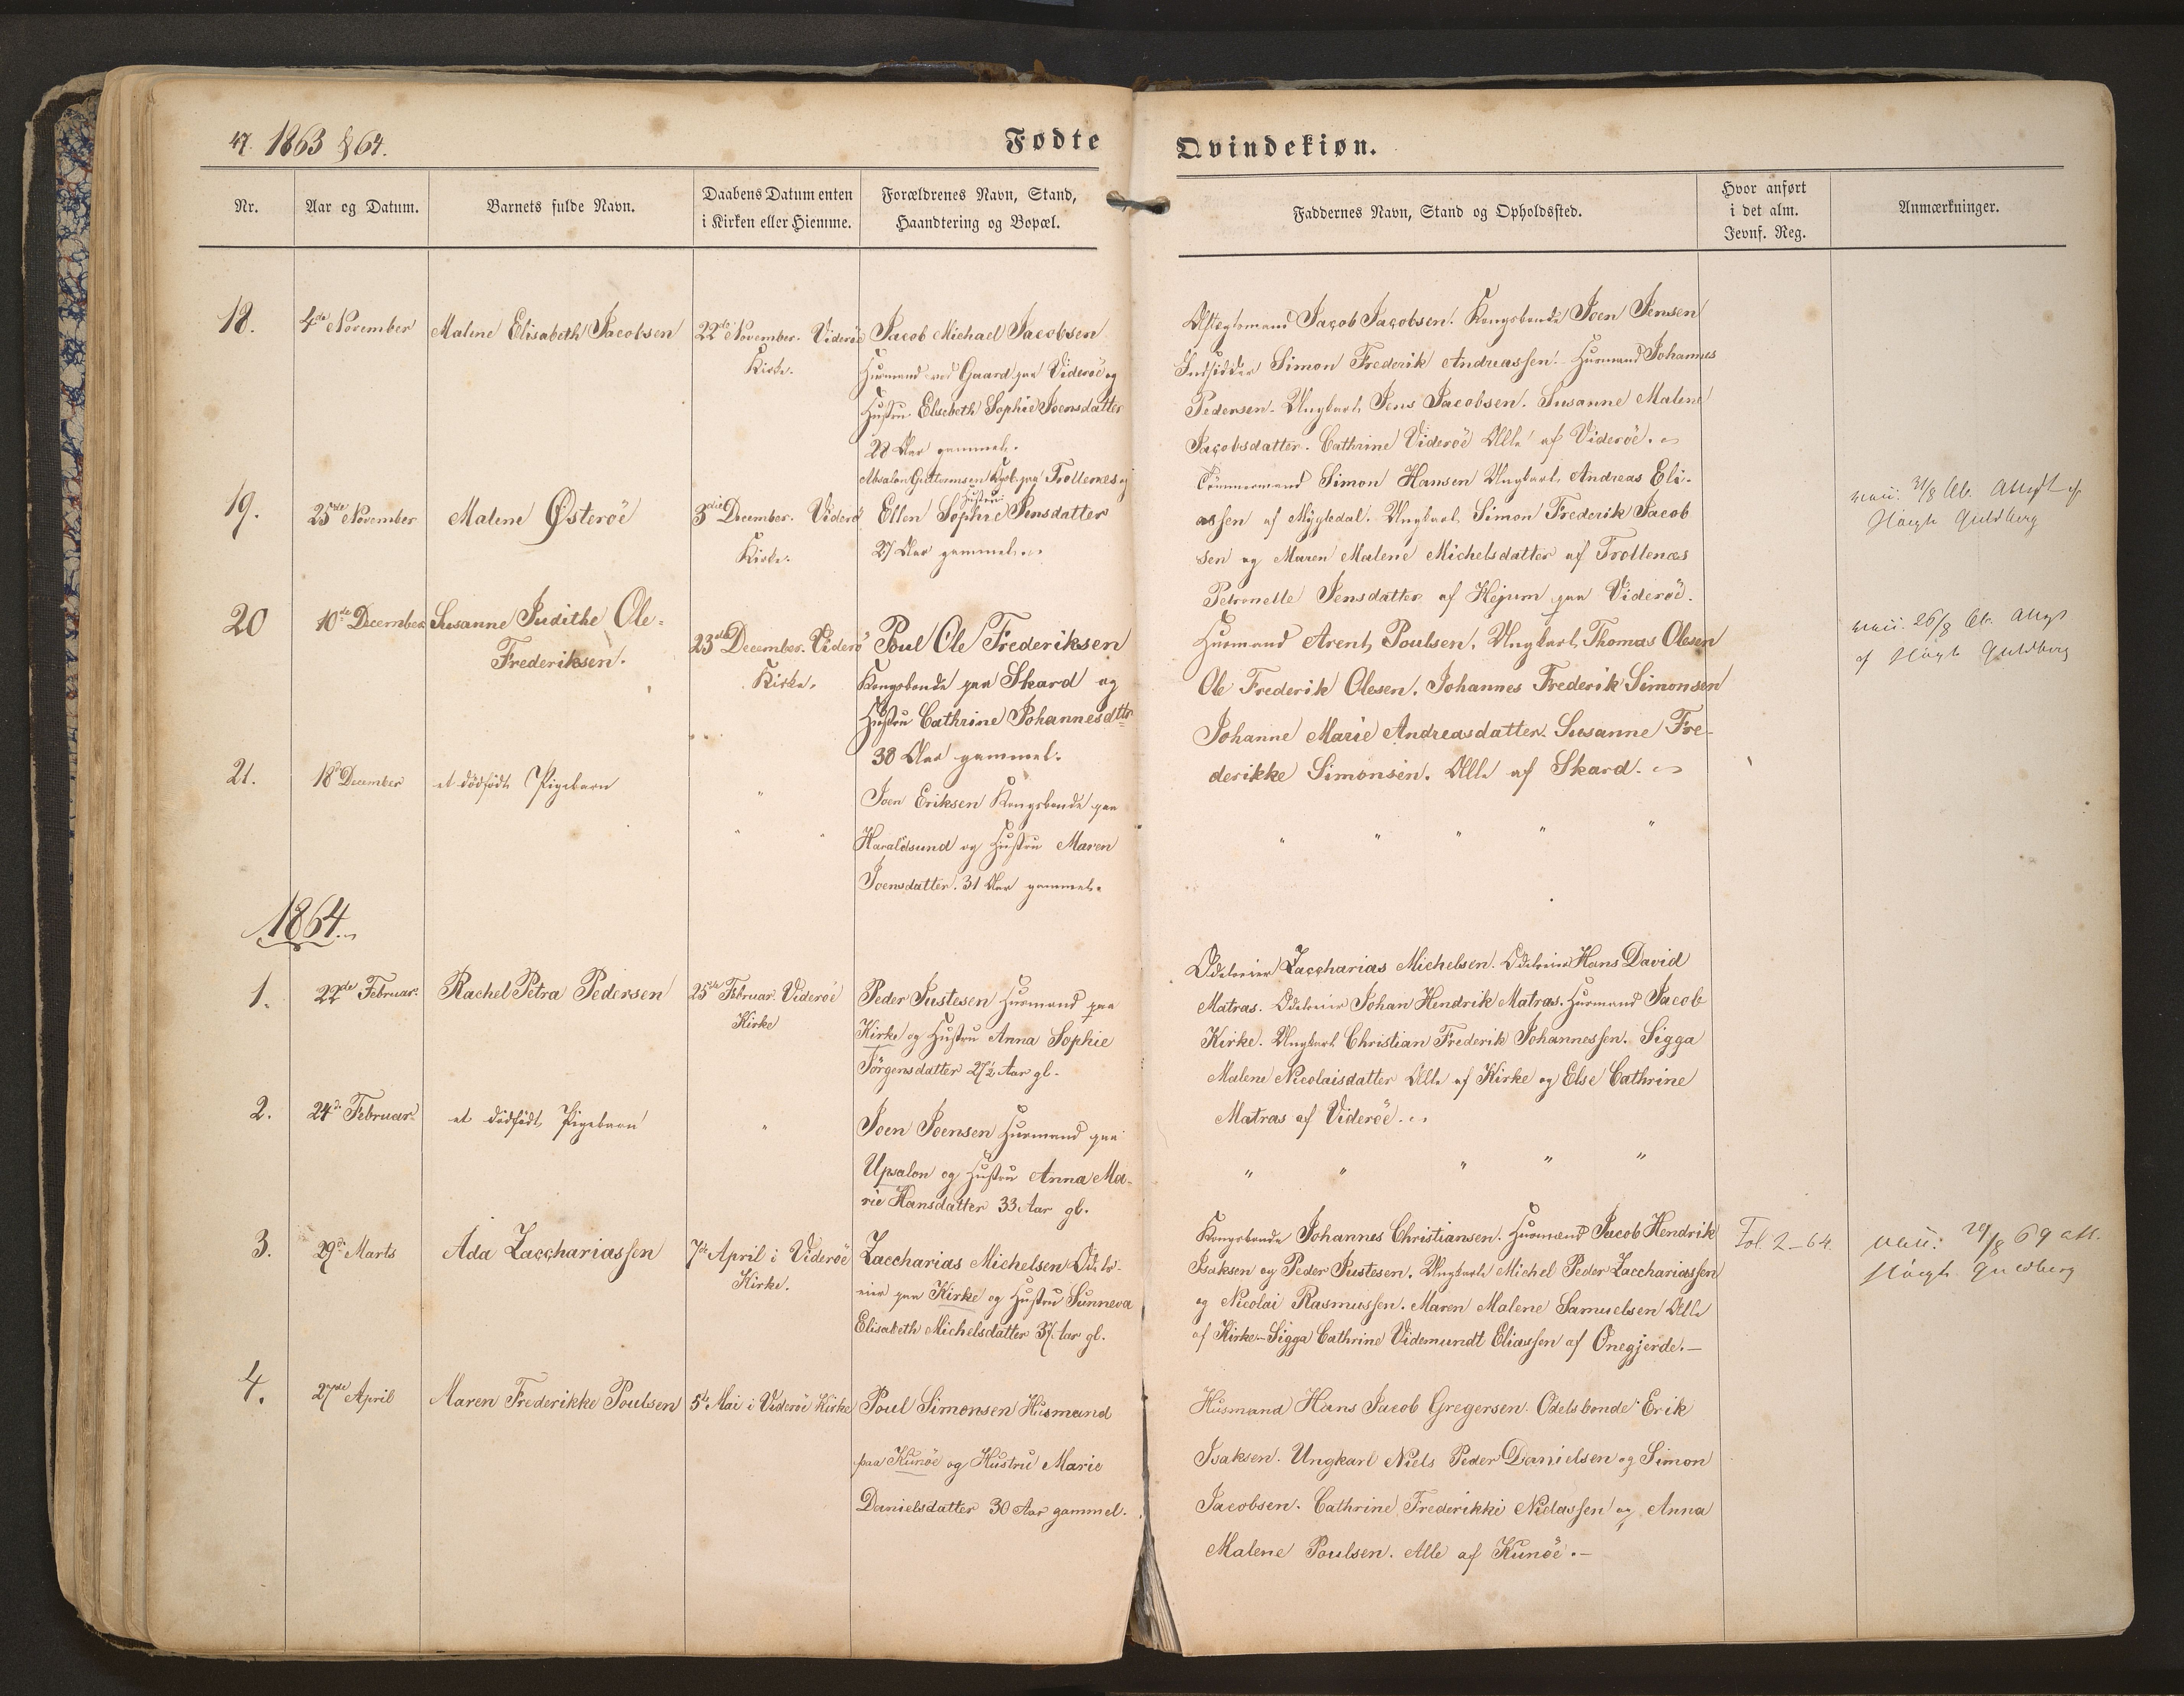 47. 1863 & 64.
Fødte
Qvindekiøn.
Nr.
Aar og Datum.
Barnets fulde Navn.
Daabens Datum enten
i Kirken eller Hiemme.
Forældrenes Navn, Stand,
Haandtering og Bopæl.
Faddernes Navn, Stand og Opholdssted.
Hvor anført
i det alm.
Jevnf. Reg.
Anmærkninger.
18.
4de November
Malene Elisabeth Jacobsen
22de November. Viderøe
Kirke.
Jacob Michael Jacobsen
Huusmand ved Gaard paa Viderøe og
Hustru Elisebeth Sophie Joensdatter
28 Aar gammel.
Jacob Jacobsen. Kongsbonde Joen Jensen
Indsidder Simon Frederik Andreassen. Huusmand Johannes
Pedersen. Ungkarl Jens Jacobsen. Susanne Malene
Jacobsdatter. Cathrine Viderøe Alle af Viderøe.
19.
25de November
Malene Østerøe
3die December. Viderø
Kirke.
Absalon Guttormsen Kgsb. paa Trollenes og
Hustru
Ellen Sophie Jensdatter
27 Aar gammel.
Tømmermand Simon Hansen Ungkarl Andreas Eli-
assen af Mygledal. Ungkarl Simon Frederik Jacob
sen og Maren Malene Michelsdatter af Trollenæs
Petronelle Jensdatter af Hejum paa Viderøe.
vacc. 31/8 66. Attest af
Guldberg
20
10de December
Susanne Judithe Ole=
Frederiksen.
23de December. Viderø
Kirke.
Poul Ole Frederiksen
Kongsbonde paa Skard og
Hustru Cathrine Johannesdttr
38 Aar gammel.
Huusmand Arent Poulsen. Ungkarl Thomas Olesen
Ole Frederik Olesen. Johannes Frederik Simonsen
Johanne Marie Andreasdatter. Susanne Fre-
derikke Simonsen. Alle af Skard.
vacc. 26/8 66. Attest
af Guldberg
21.
18de December
et dødfødt Pigebarn
" " "
Joen Eriksen Kongsbonde paa
Haraldsund og Hustru Maren
Joensdatter. 31 Aar gammel.
" " " " "
1864.
1.
22de Februar.
Rachel Petra Pedersen
25de Februar. Viderøe
Kirke
Peder Justesen Huusmand paa
Kirke og Hustru Anna Sophie
Jörgensdatter 27½ Aar gl.
Odelseier Zaccharias Michelsen. Odelseier Hans David
Matras. Odelseier Johan Hendrik Matras. Huusmand Jacob
Kirke. Ungkarl Christian Frederik Johannessen. Sigga
Malene Nicolaisdatter Alle af Kirke og Else Cathrine
Matras af Viderøe.
2.
24de Februar.
et dødfødt Pigebarn
"
Joen Joensen Huusmand paa
Upsalon og Hustru Anna Ma-
rie Hansdatter 33 Aar gl.
" " " " "
3.
29de Marts
Ada Zacchariassen
7de April i Viderøe
Kirke.
Zaccharias Michelsen Odels-
eier paa Kirke og Hustru Sunneva
Elisabeth Michelsdatter 37 Aar gl.
Kongsbonde Johannes Christiansen. Huusmand Jacob Hendrik
Isaksen og Peder Justesen. Ungkarle Michel Peder Zacchariassen
og Nicolai Rasmussen. Maren Malene Samuelsen Alle
af Kirke - Sigga Cathrine Videmundt Eliassen af Onegjerde.-
Fol. 2-64.
vacc: 29/8 69 att.
Guldberg
4.
27de April
Maren Frederikke Poulsen
5te Mai i Viderøe Kirke
Poul Simonsen Husmand
paa Kunöe og Hustru Marie
Danielsdatter 30 Aar gammel.
Husmand Hans Jacob Gregersen. Odelsbonde Erik
Isaksen. Ungkarl Niels Peder Danielsen og Simon
Jacobsen. Cathrine Frederikke Niclassen og Anna
Malene Poulsen. Alle af Kunöe.-